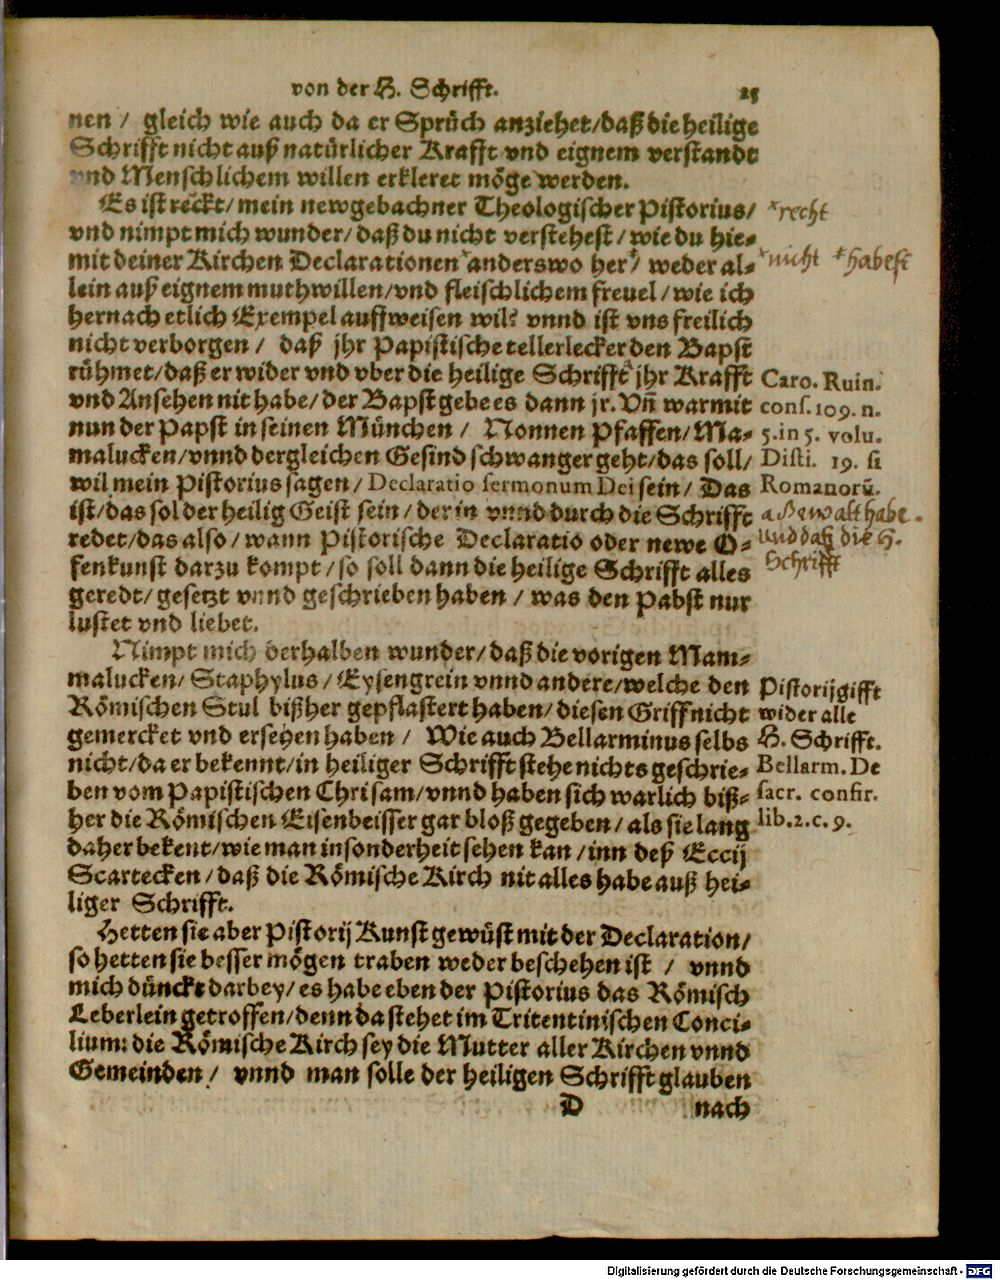 von der H. Schrifft. 25
nen / gleich wie auch da er Sprüch anziehet/daß die heilige
Schrifft nicht auß natürlicher Krafft vnd eignem verstandt
vnd Menschlichem willen erkleret möge werden.
Es ist reckt/ mein newgebachner Theologischer Pistorius/
vnd nimpt mich wunder/ daß du nicht verstehest / wie du hie-
mit deiner Kirchen Declarationen anderswo her/ weder al-
lein auß eignem muthwillen/vnd fleischlichem freuel / wie ich
hernach etlich Exempel auffweisen wil? vnnd ist vns freilich
nicht verborgen / daß jhr Papistische tellerlecker den Bapst
rühmet/daß er wider vnd vber die heilige Schrifft jhr Krafft
vnd Ansehen nit habe/ der Bapst gebe es dann jr. Vñ warmit
nun der Papst in seinen München / Nonnen Pfaffen/ Ma-
malucken/vnnd dergleichen Gesind schwanger geht/das soll/
wil mein Pistorius sagen/ Declaratio sermonum Dei sein/ Das
ist/das sol der heilig Geist sein/ der in vnnd durch die Schrifft
redet/das also/ wann Pistorische Declaratio oder newe O-
fenkunst darzu kompt/ so soll dann die heilige Schrifft alles
geredt/ gesetzt vnnd geschrieben haben / was den Pabst nur
lustet vnd liebet.
Nimpt mich derhalben wunder/ daß die vorigen Mam-
malucken/ Staphylus / Eysengrein vnnd andere/welche den
Römischen Stul bißher gepflastert haben/ diesen Griff nicht
gemercket vnd ersehen haben / Wie auch Bellarminus selbs
nicht/da er bekennt/in heiliger Schrifft stehe nichts geschrie-
ben vom Papistischen Chrisam/vnnd haben sich warlich biß-
her die Römischen Eisenbeisser gar bloß gegeben/ als sie lang
daher bekent/wie man insonderheit sehen kan / inn deß Eccij
Scartecken/ daß die Römische Kirch nit alles habe auß hei-
liger Schrifft.
Hetten sie aber Pistorij Kunst gewüst mit der Declaration/
so hetten sie besser mögen traben weder beschehen ist / vnnd
mich dünckt darbey/ es habe eben der Pistorius das Römisch
Leberlein getroffen/denn da stehet im Tritentinischen Conci-
lium: die Römische Kirch sey die Mutter aller Kirchen vnnd
Gemeinden / vnnd man solle der heiligen Schrifft glauben
D nach
*recht
*nicht *habest
Caro. Ruin.
cons. 109. n.
5. in 5. volu.
Disti. 19. si
Romanorũ.
a Gewalt habe.
und daß die H.
Schrifft
Pistorij gifft
wider alle
H. Schrifft.
Bellarm. De
sacr. confir.
lib. 2. c. 9.
Digitalisierung gefördert durch die Deutsche Forschungsgemeinschaft - DFG